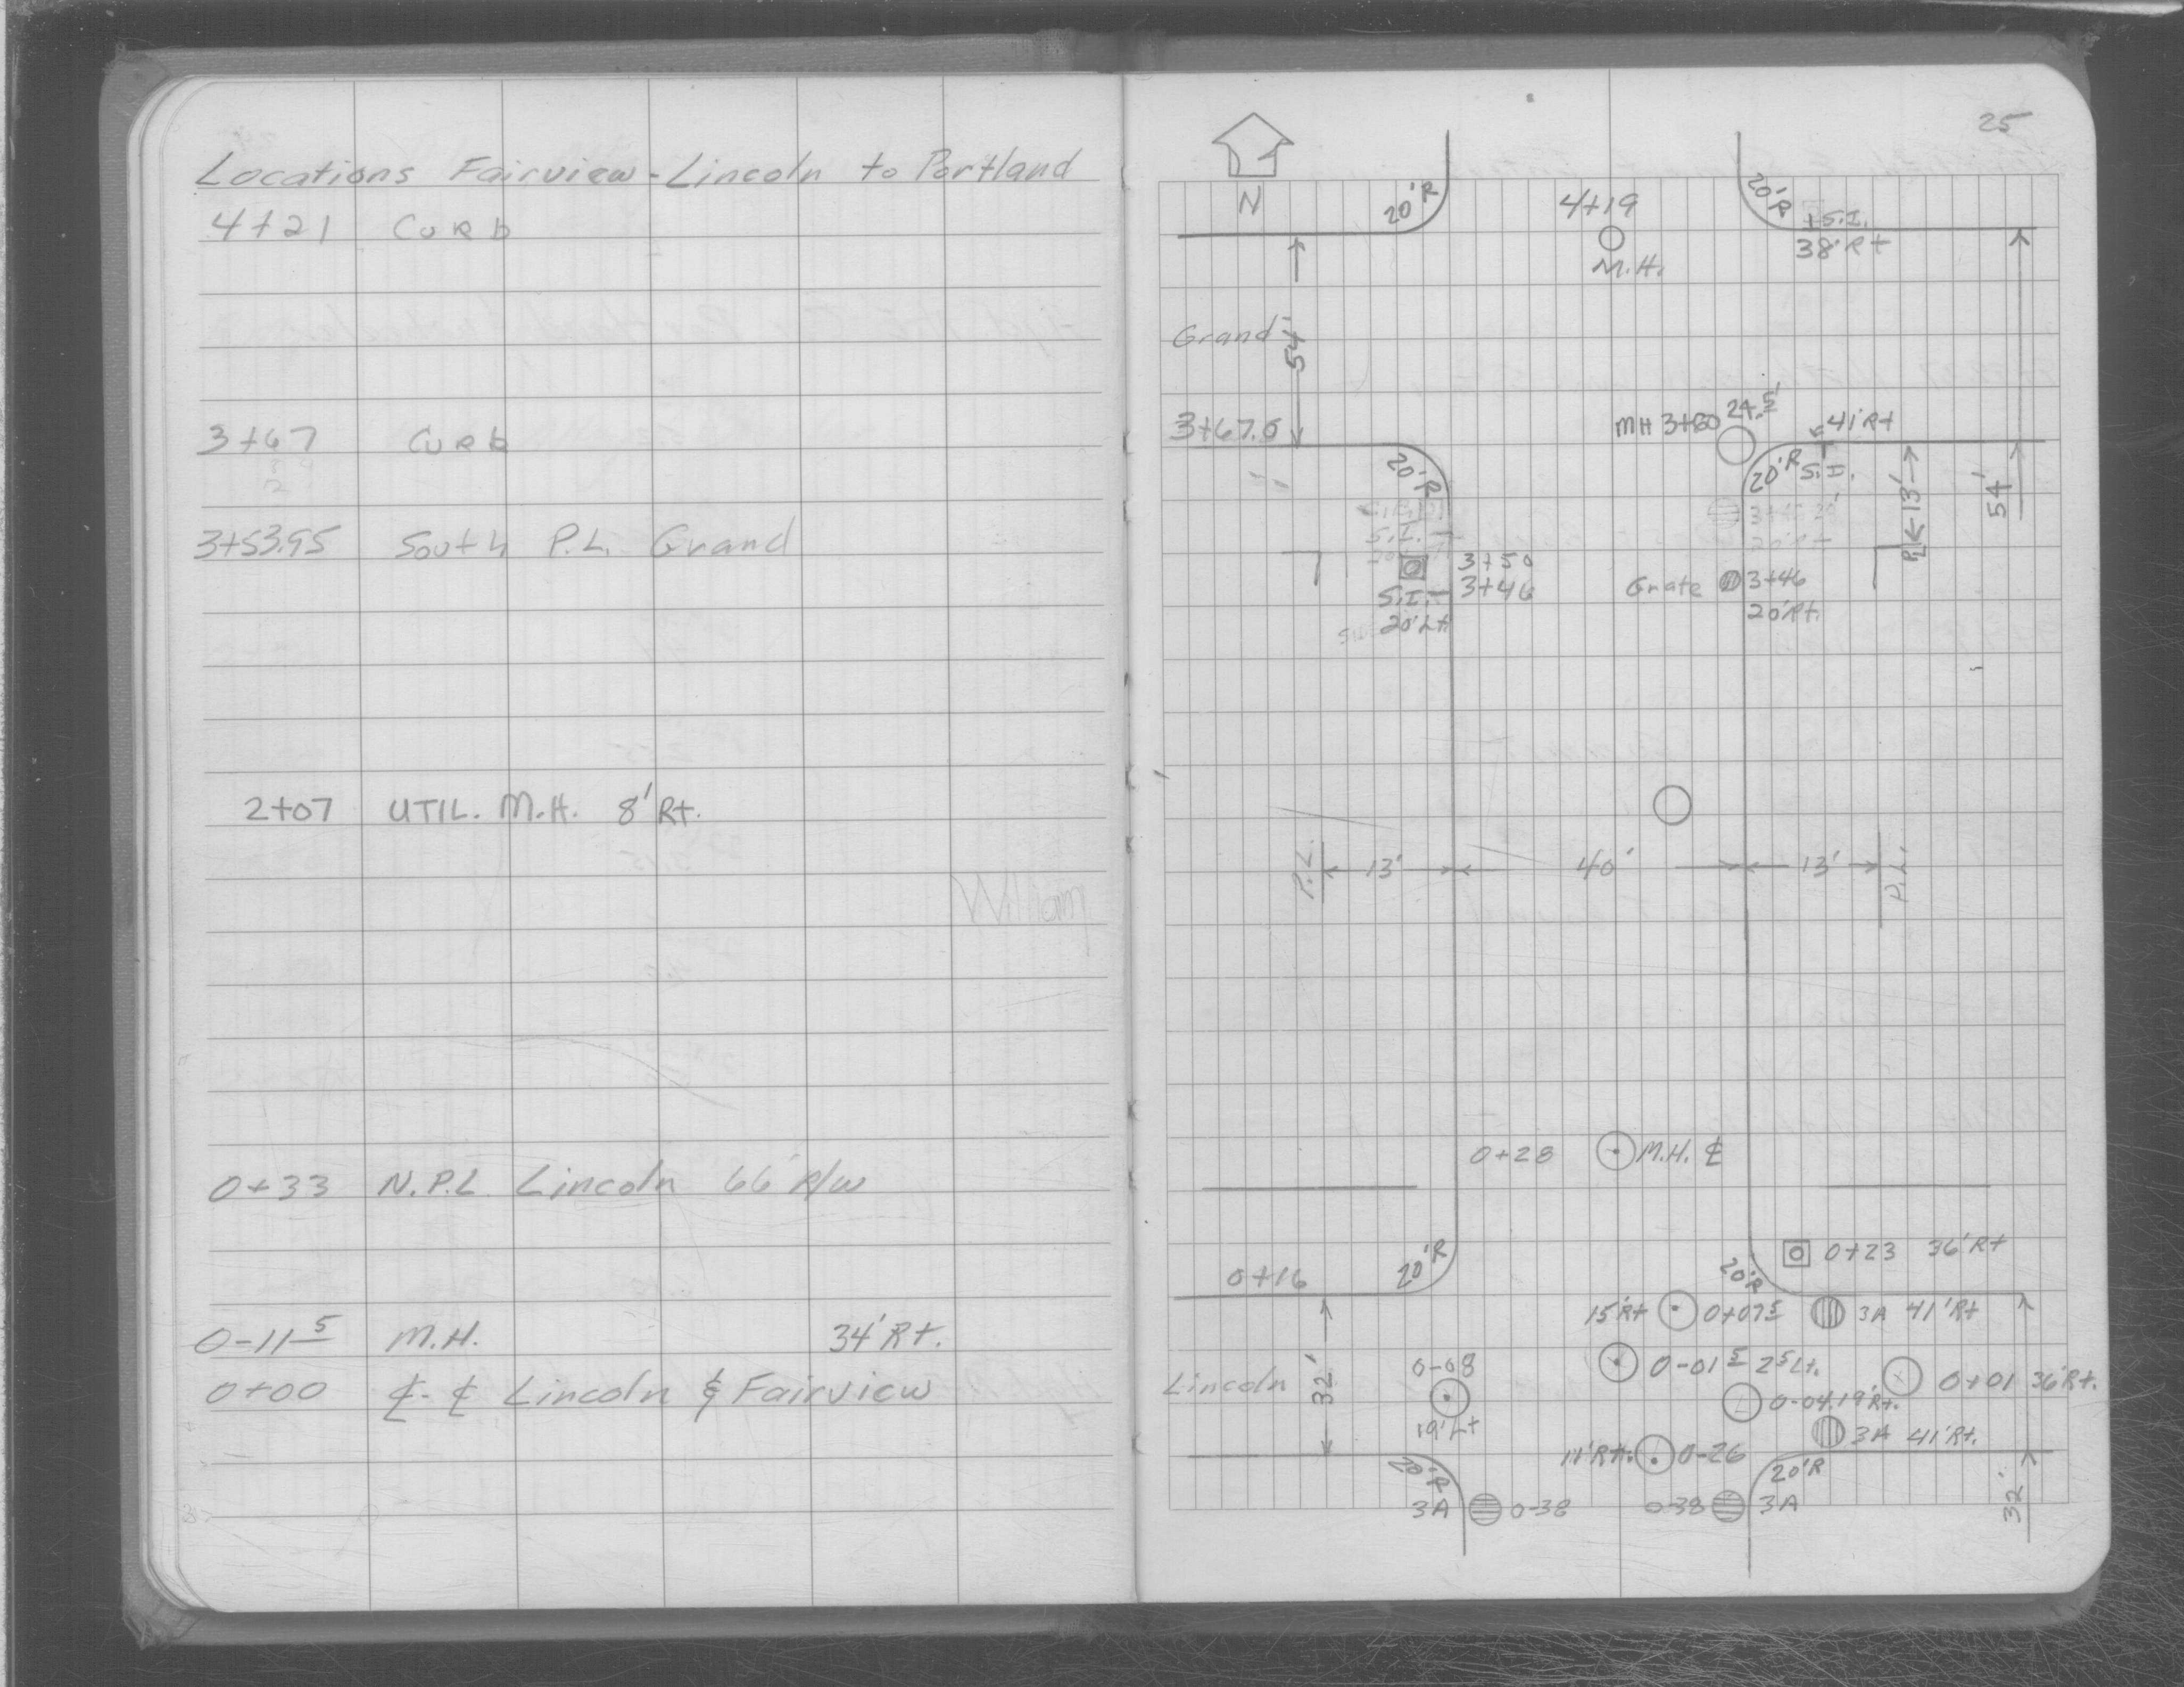 Locations Fairview - Lincoln to Portland
4+21 Curb
3+67 Curb
3+53.95 South P.L. Grand
2+07 UTIL. M.H. 8' Rt.
William
0+33 N.P.L Lincoln 66' R/W
0-11 5 M.H. 34' Rt.
0+00 ℄ - ℄ Lincoln & Fairview
25
N
20'R
4+19
M.H.
20'R
S.I.
38' Rt
Grand
54'
3+67.5
MH 3+80 24.5'
41' Rt
20'R
20'R
S.I.
13'
P.L.
54'
S.I.
3+50
3+46
S.I.
20' Lt.
Grate 3+46
20' Rt.
P.L. 13' 40' 13' P.L.
0+28 M.H. ℄
0+16
20'R
20'R
0+23 36' Rt
15' Rt 0+07 5 3A 41' Rt
Lincoln
32'
0-08
19' Lt
0-01 5 2 5 Lt.
0+01 36' Rt.
0-04 19' Rt.
3A 41' Rt.
11' Rt. 0-26
20'R
20'R
3A 0-38
0-38 3A
32'